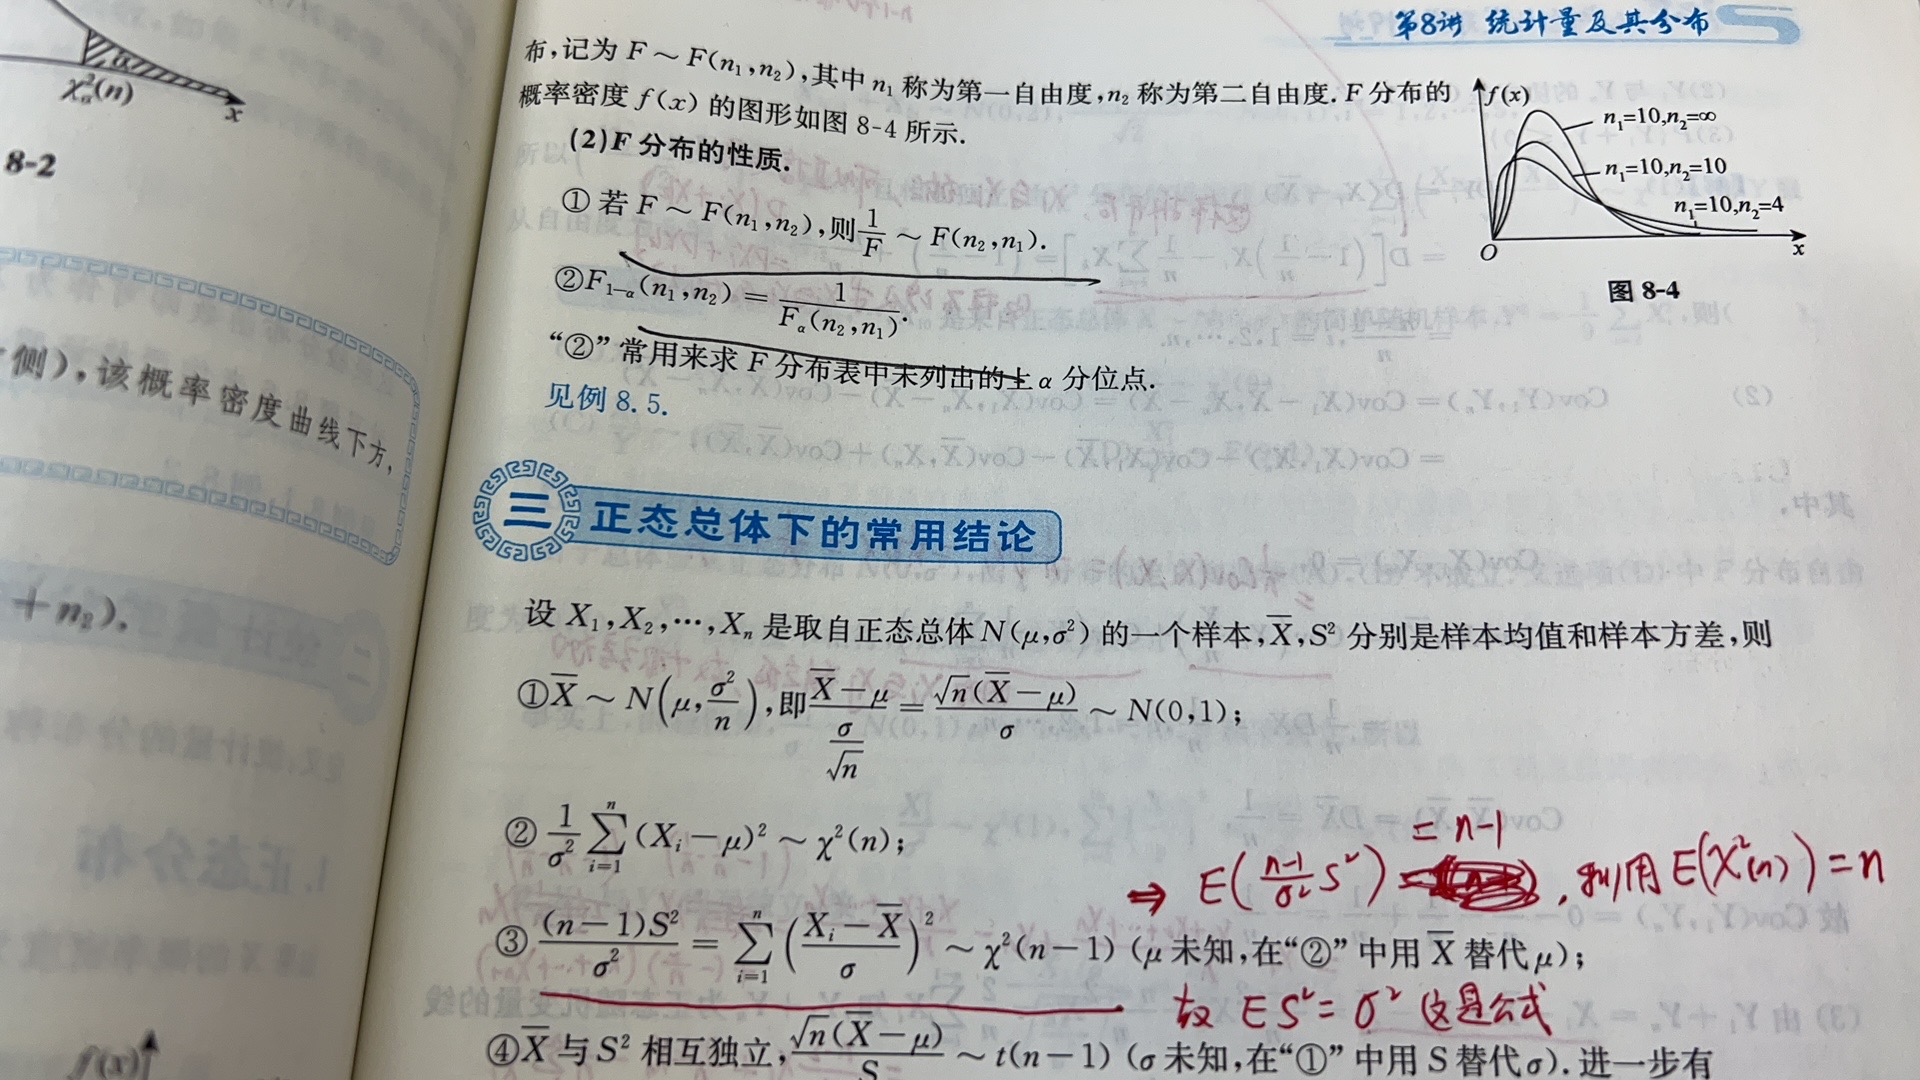 第8讲 统计量及其分布
布,记为 F ~ F(n₁,n₂),其中 n₁ 称为第一自由度,n₂ 称为第二自由度. F 分布的
概率密度 f(x) 的图形如图 8-4 所示.
(2)F 分布的性质.
① 若 F ~ F(n₁,n₂),则 1/F ~ F(n₂,n₁).
②F₁₋α(n₁,n₂) = 1/Fα(n₂,n₁).
“②”常用来求 F 分布表中未列出的上 α 分位点.
见例 8.5.
f(x)
n₁=10,n₂=∞
n₁=10,n₂=10
n₁=10,n₂=4
O
x
图 8-4
三 正态总体下的常用结论
设 X₁,X₂,⋯,Xₙ 是取自正态总体 N(μ,σ²) 的一个样本,X̄,S² 分别是样本均值和样本方差,则
①X̄ ~ N(μ,σ²/n),即 (X̄−μ)/(σ/√n) = √n(X̄−μ)/σ ~ N(0,1);
② 1/σ² ∑ᵢ₌₁ⁿ (Xᵢ−μ)² ~ χ²(n);
= n-1
⇒ E((n-1)/σ² S²) = , 利用 E(χ²(n)) = n
③ (n−1)S²/σ² = ∑ᵢ₌₁ⁿ ((Xᵢ−X̄)/σ)² ~ χ²(n−1) (μ 未知,在“②”中用 X̄ 替代 μ);
故 ES² = σ² 这是公式
④X̄ 与 S² 相互独立, √n(X̄−μ)/S ~ t(n−1) (σ 未知,在“①”中用 S 替代 σ). 进一步有
α
χ²α(n)
x
8-2
侧),该概率密度曲线下方,
+n₂).
f(x)